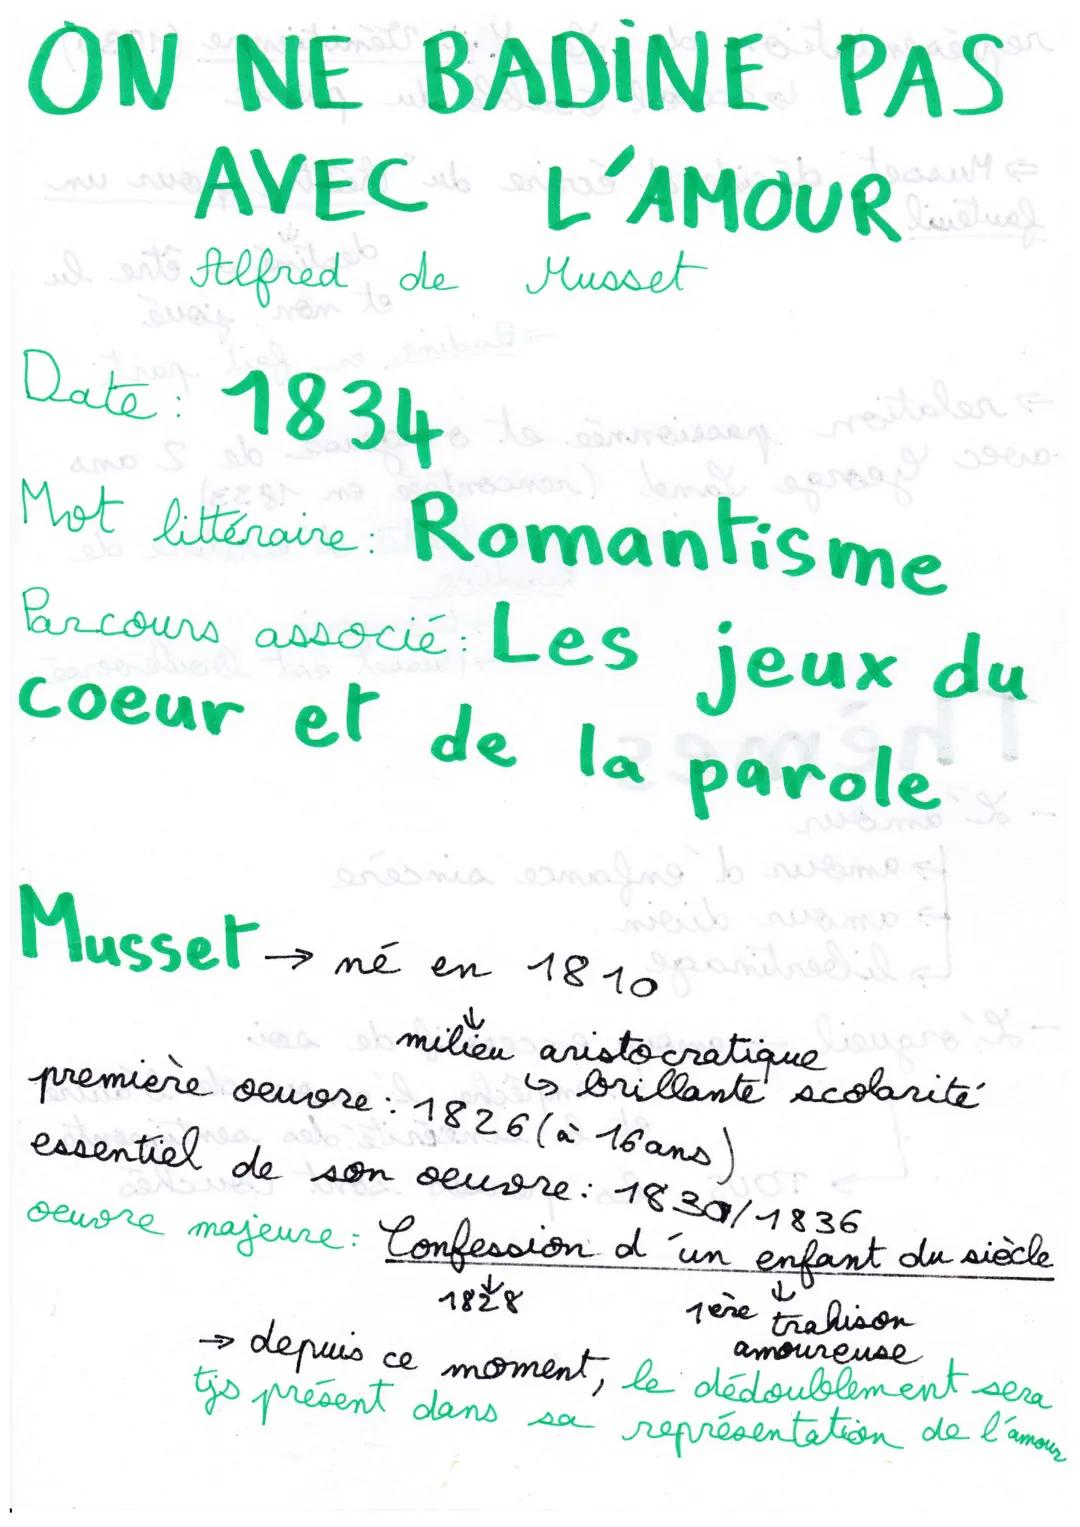 ON NE BADINE PAS
AVEC L'AMOUR
Alfred de Musset
Date: 1834
Mot littéraire: Romantisme
Parcours associé: Les jeux du
coeur et de la parole
Musset → né en 1810
↓
milieu aristocratique
↳ brillante scolarité
première oeuvre: 1826 (à 16ans)
essentiel de son oeuvre: 1830/1836
oeuvre majeure: Confession d'un enfant du siècle
↓ ↓
1828 1ère trahison
amoureuse
→ depuis ce moment, le dédoublement sera
tjs présent dans sa représentation de l'amour